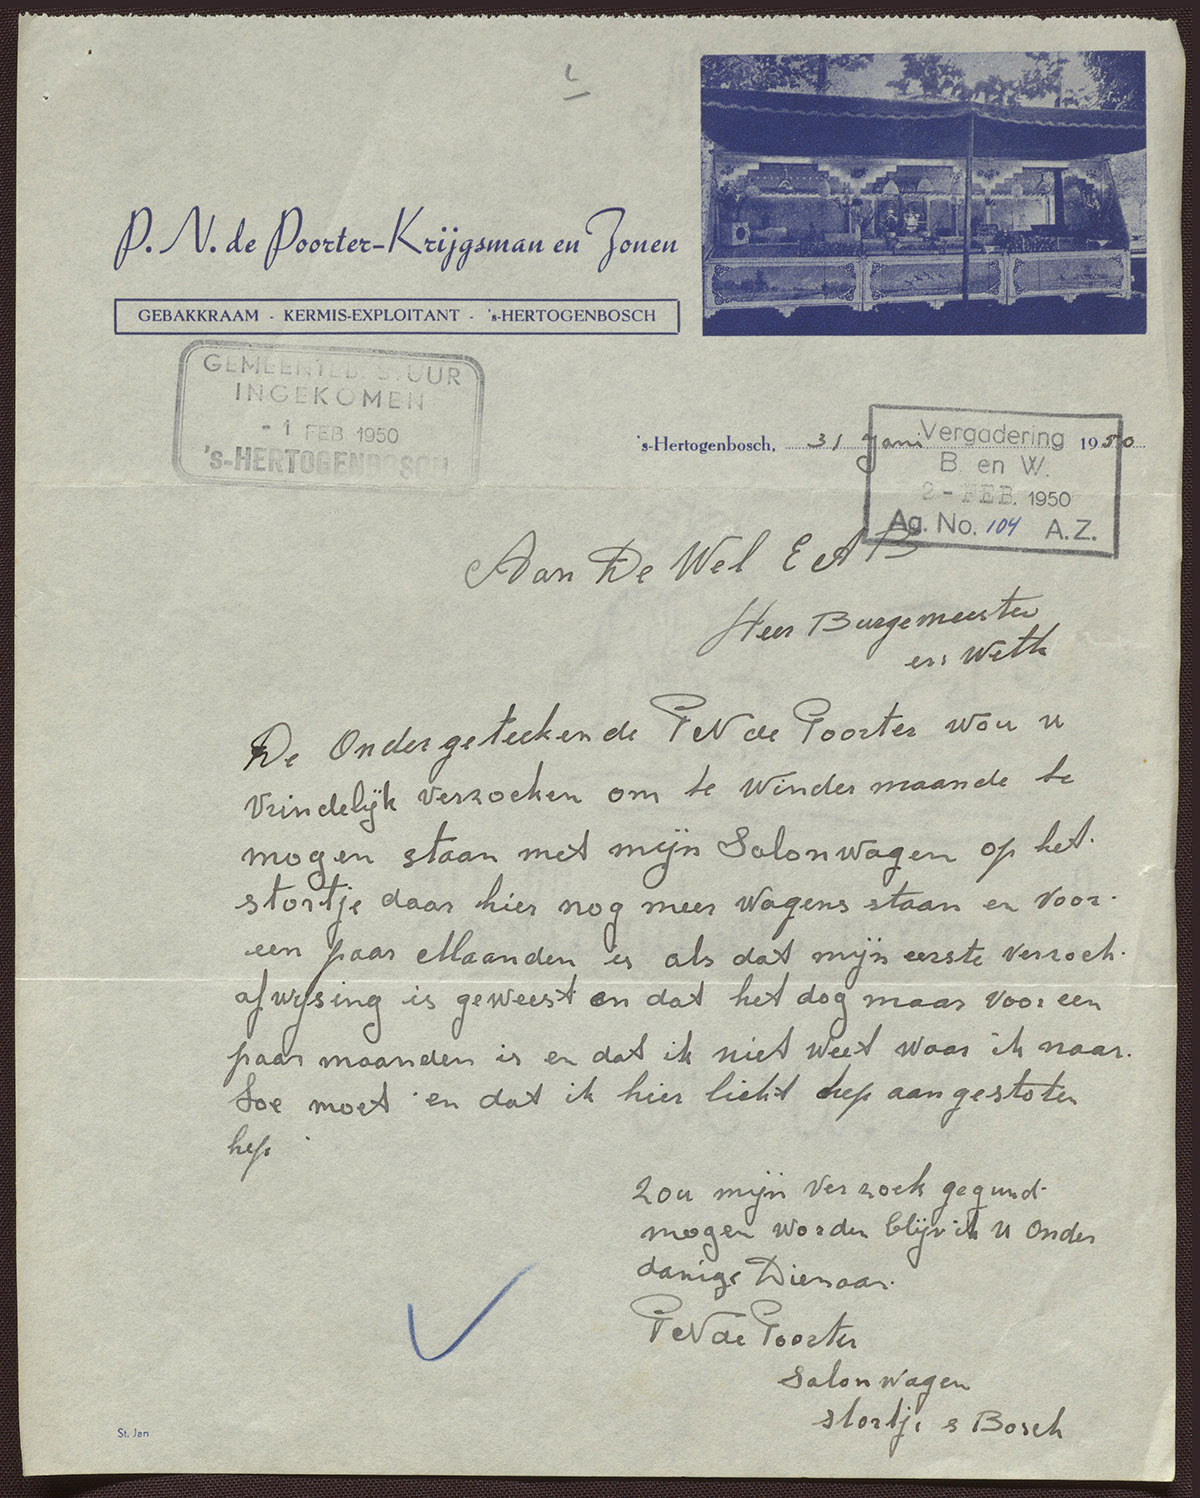 P. N. de Poorter-Krijgsman en Zonen
GEBAKKRAAM - KERMIS-EXPLOITANT - 's-HERTOGENBOSCH
GEMEENTEB STUUR
INGEKOMEN
- 1 FEB 1950
's-HERTOGENBOSCH
's-Hertogenbosch, 31 Jani 1950
Vergadering
B. en W.
2 - FEB. 1950
Ag. No. 104 A.Z.
Aan De Wel E A B
Heer Burgemeester
en Weth
De Ondergeteekende P N de Poorter wou u
vrindelijk verzoeken om te winder maande te
mogen staan met mijn Salonwagen op het
stortje daar hier nog meer wagens staan en voor
een paar Maanden is als dat mijn eerste verzoek
afwysing is geweest en dat het dog maar voor een
paar maanden is en dat ik niet weet waar ik naar
toe moet en dat ik hier licht hep aangestoten
hep
Zou mijn verzoek gegund
mogen worden blijv ik u onder
danige Dienaar.
P N de Poorter
Salonwagen
stortje s Bosch
St. Jan